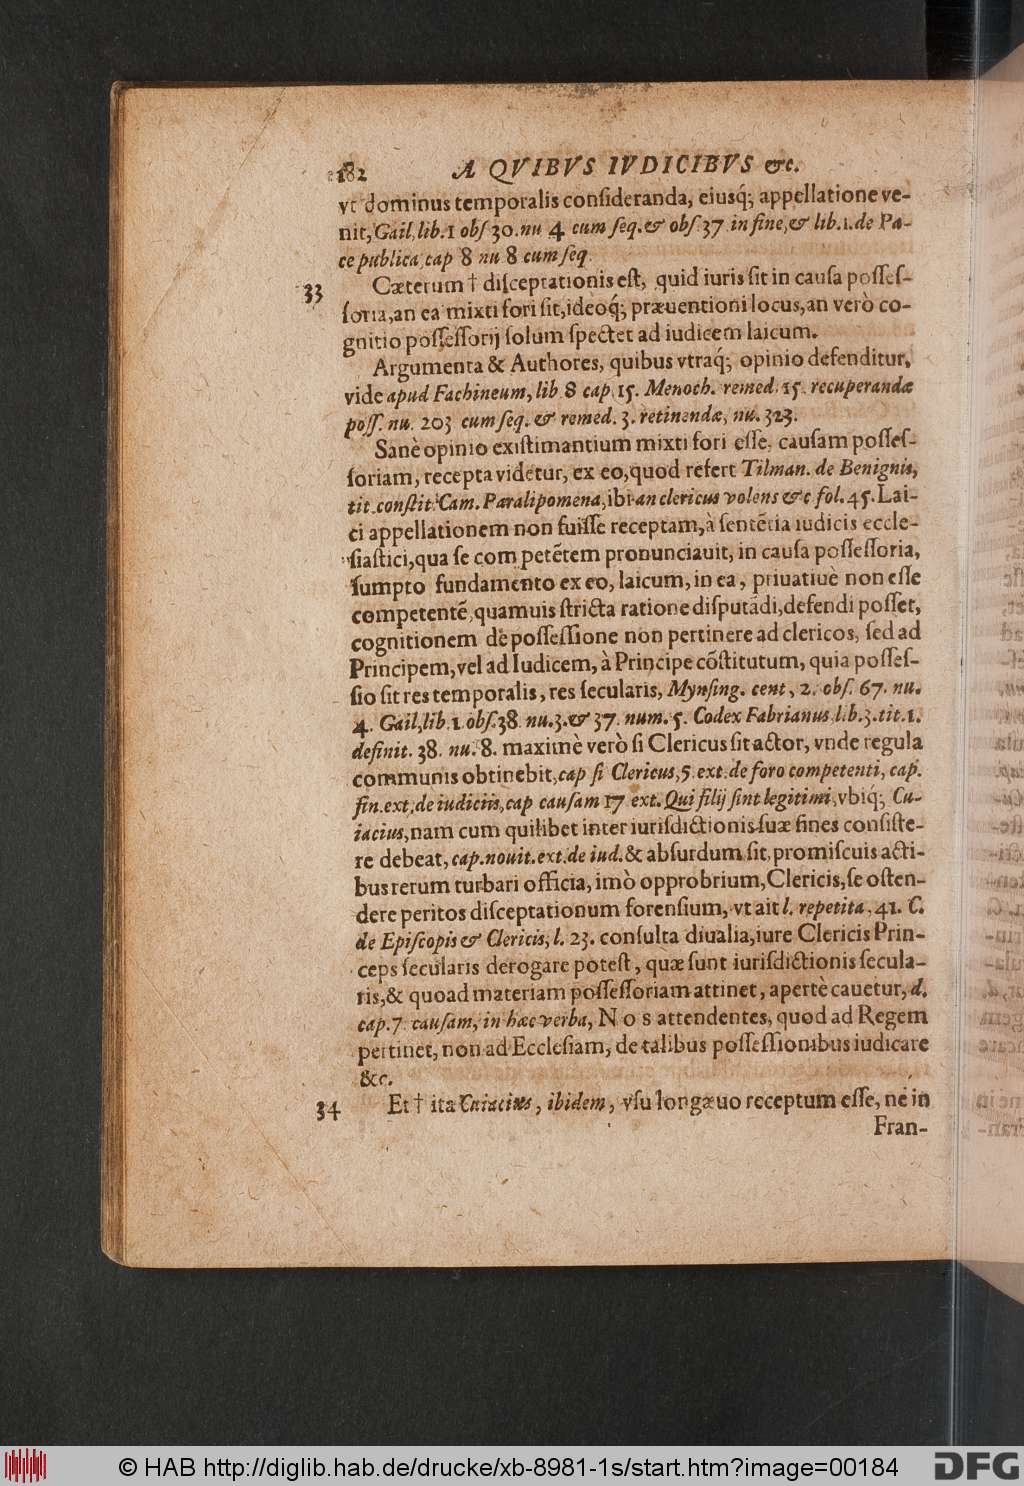 182 A QVIBVS IVDICIBVS &c.
vt dominus temporalis conſideranda, eiusq́; appellatione ve-
nit, Gail, lib. 1 obſ 30. nu 4 cum ſeq. & obſ 37 in fine, & lib. 1. de Pa-
ce publica cap 8 nu 8 cum ſeq
33 Cæterum † diſceptationis eſt, quid iuris ſit in cauſa poſſeſ-
ſoria, an ea mixti fori ſit, ideoq́; præuentioni locus, an verò co-
gnitio poſſeſſorij ſolum ſpectet ad iudicem laicum.
Argumenta & Authores, quibus vtraq́; opinio defenditur,
vide apud Fachineum, lib 8 cap. 15. Menoch. remed. 15. recuperandæ
poſſ. nu. 203 cum ſeq. & remed. 3. retinendæ, nu. 323.
Sanè opinio exiſtimantium mixti fori eſſe, cauſam poſſeſ-
ſoriam, recepta videtur, ex eo, quod refert Tilman. de Benignis,
tit. conſtit. Cam. Paralipomena, ibi an clericus volens &c fol. 45. Lai-
ci appellationem non fuiſſe receptam, à ſentẽtia iudicis eccle-
ſiaſtici, qua ſe competẽtem pronunciauit, in cauſa poſſeſſoria,
ſumpto fundamento ex eo, laicum, in ea, priuatiuè non eſſe
competentẽ, quamuis ſtricta ratione diſputãdi, defendi poſſet,
cognitionem de poſſeſſione non pertinere ad clericos, ſed ad
Principem, vel ad Iudicem, à Principe cõſtitutum, quia poſſeſ-
ſio ſit res temporalis, res ſecularis, Mynſing. cent, 2. obſ. 67. nu.
4. Gail, lib. 1. obſ. 38. nu. 3. & 37. num. 5. Codex Fabrianus lib. 3. tit. 1.
definit. 38. nu. 8. maximè verò ſi Clericus ſit actor, vnde regula
communis obtinebit, cap ſi Clericus, 5 ext. de foro competenti, cap.
fin. ext, de iudiciis, cap cauſam 17 ext. Qui filij ſint legitimi, vbiq́; Cu-
iacius, nam cum quilibet inter iuriſdictionis ſuæ fines conſiſte-
re debeat, cap. nouit. ext. de iud. & abſurdum ſit, promiſcuis acti-
bus rerum turbari officia, imò opprobrium, Clericis, ſe oſten-
dere peritos diſceptationum forenſium, vt ait l. repetita, 41. C.
de Epiſcopis & Clericis, l. 23. conſulta diualia, iure Clericis Prin-
ceps ſecularis derogare poteſt, quæ ſunt iuriſdictionis ſecula-
ris, & quoad materiam poſſeſſoriam attinet, apertè cauetur, d.
cap. 7. cauſam, in hæc verba, Nos attendentes, quod ad Regem
pertinet, non ad Eccleſiam, de talibus poſſeſſionibus iudicare
&c.
34 Et † ita Cuiacius, ibidem, vſu longæuo receptum eſſe, ne in
Fran-
© HAB http://diglib.hab.de/drucke/xb-8981-1s/start.htm?image=00184
DFG